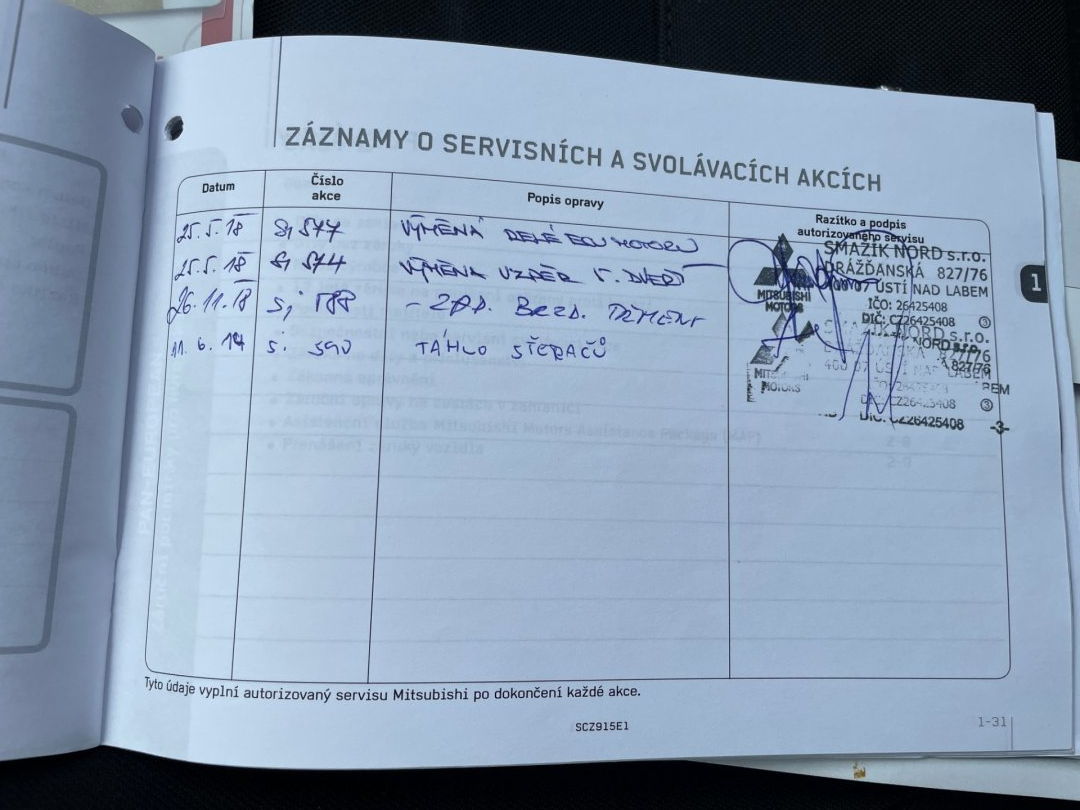 ZÁZNAMY O SERVISNÍCH A SVOLÁVACÍCH AKCÍCH
Datum
Číslo
akce
Popis opravy
Razítko a podpis
autorizovaného servisu
25.5.18 577 VÝMĚNA MOTORU
25.5.18 574 VÝMĚNA VZPĚR V. DVEŘÍ
26.11.18 188 - ZAD. BRZD. TŘMENY
11.6. S. 590 TÁHLO STĚRAČŮ
SMAŽÍK NORD s.r.o.
DRÁŽĎANSKÁ 827/76
ÚSTÍ NAD LABEM
MITSUBISHI
MOTORS
IČO: 26425408
DIČ: CZ26425408 3
NORD s.r.o.
NORD s.r.o.
827/76
827/76
400 07 ÚSTÍ NAD LABEM
MOTORS
CZ26425408 3
DIČ: CZ26425408 -3-
1
Tyto údaje vyplní autorizovaný servisu Mitsubishi po dokončení každé akce.
SCZ915E1
1-31